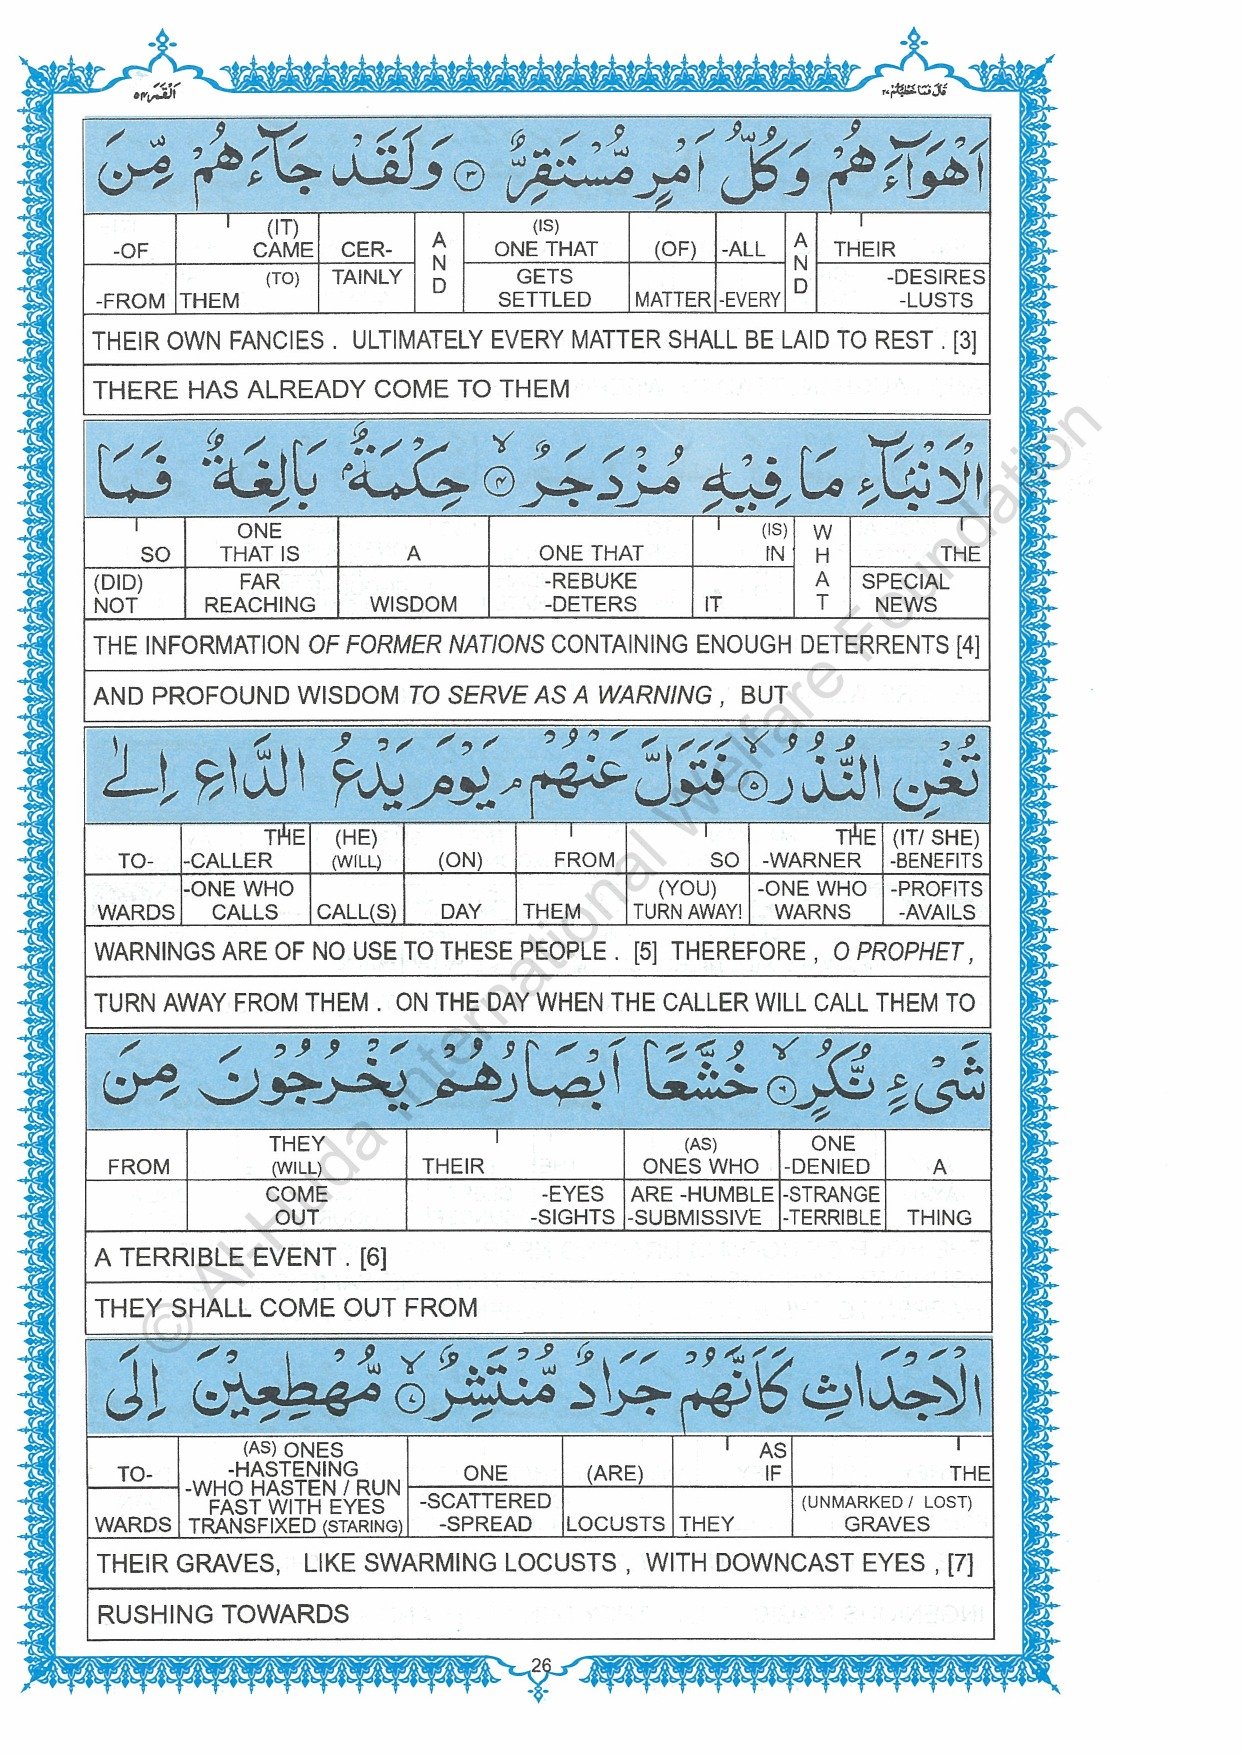 القمر ٥٤
قال فما خطبكم ٢٧
اَهْوَآءَهُمْ وَكُلُّ اَمْرٍ مُّسْتَقِرٌّ ٣ وَلَقَدْ جَآءَهُمْ مِّنَ
(IT) (IS)
-OF CAME CER- AND ONE THAT (OF) -ALL AND THEIR
(TO) TAINLY GETS -DESIRES
-FROM THEM SETTLED MATTER -EVERY -LUSTS
THEIR OWN FANCIES . ULTIMATELY EVERY MATTER SHALL BE LAID TO REST . [3]
THERE HAS ALREADY COME TO THEM
الْاَنْۢبَآءِ مَا فِيْهِ مُزْدَجَرٌ ۙ ٤ حِكْمَةٌۢ بَالِغَةٌ فَمَا
ONE (IS) WHAT
SO THAT IS A ONE THAT IN THE
(DID) FAR -REBUKE SPECIAL
NOT REACHING WISDOM -DETERS IT NEWS
THE INFORMATION OF FORMER NATIONS CONTAINING ENOUGH DETERRENTS [4]
AND PROFOUND WISDOM TO SERVE AS A WARNING , BUT
تُغْنِ النُّذُرُ ۙ ٥ فَتَوَلَّ عَنْهُمْ ۘ يَوْمَ يَدْعُ الدَّاعِ اِلٰى
THE (HE) THE (IT/ SHE)
TO- -CALLER (WILL) (ON) FROM SO -WARNER -BENEFITS
-ONE WHO (YOU) -ONE WHO -PROFITS
WARDS CALLS CALL(S) DAY THEM TURN AWAY! WARNS -AVAILS
WARNINGS ARE OF NO USE TO THESE PEOPLE . [5] THEREFORE , O PROPHET ,
TURN AWAY FROM THEM . ON THE DAY WHEN THE CALLER WILL CALL THEM TO
شَيْءٍ نُّكُرٍ ۙ ٦ خُشَّعًا اَبْصَارُهُمْ يَخْرُجُوْنَ مِنَ
THEY (AS) ONE
FROM (WILL) THEIR ONES WHO -DENIED A
COME -EYES ARE -HUMBLE -STRANGE
OUT -SIGHTS -SUBMISSIVE -TERRIBLE THING
A TERRIBLE EVENT . [6]
THEY SHALL COME OUT FROM
الْاَجْدَاثِ كَاَنَّهُمْ جَرَادٌ مُّنْتَشِرٌ ۙ ٧ مُّهْطِعِيْنَ اِلَى
(AS) ONES AS
TO- -HASTENING ONE (ARE) IF THE
-WHO HASTEN / RUN
FAST WITH EYES -SCATTERED (UNMARKED / LOST)
WARDS TRANSFIXED (STARING) -SPREAD LOCUSTS THEY GRAVES
THEIR GRAVES, LIKE SWARMING LOCUSTS , WITH DOWNCAST EYES , [7]
RUSHING TOWARDS
26
© Al-Huda International Welfare Foundation